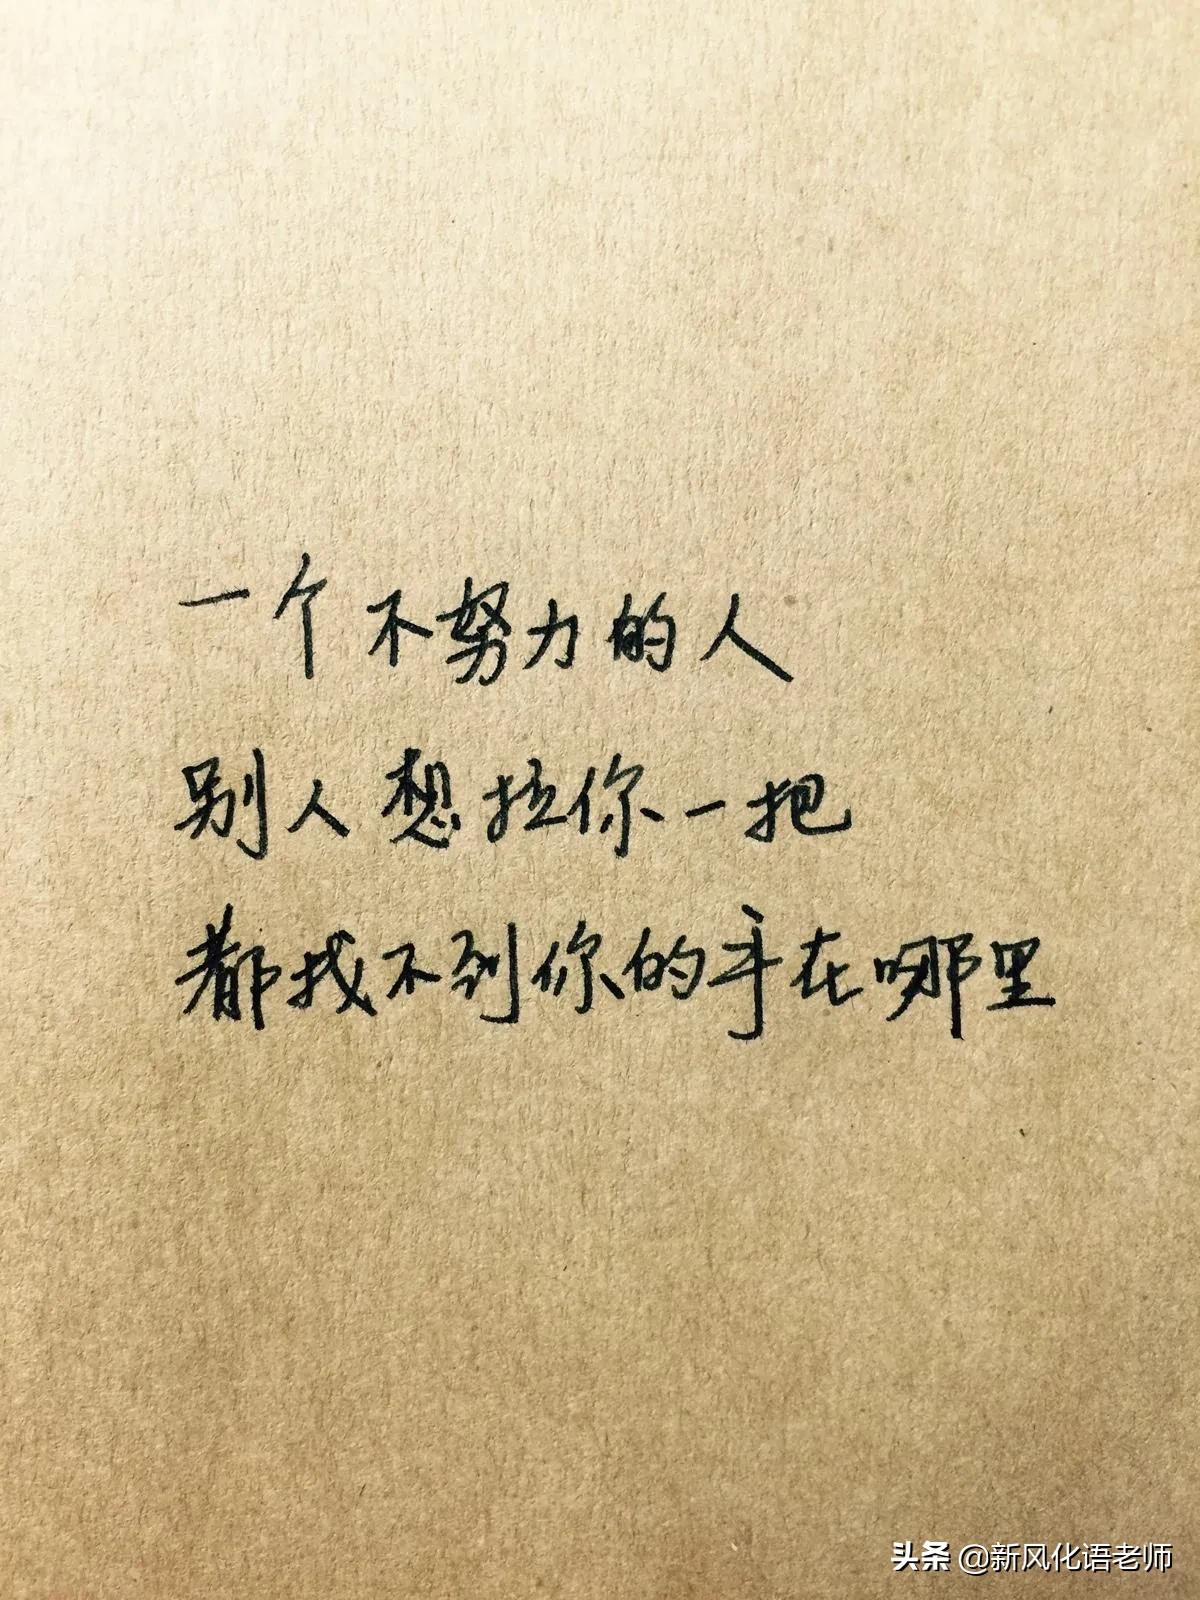 一个不努力的人
别人想拉你一把
都找不到你的手在哪里
头条 @新风化语老师